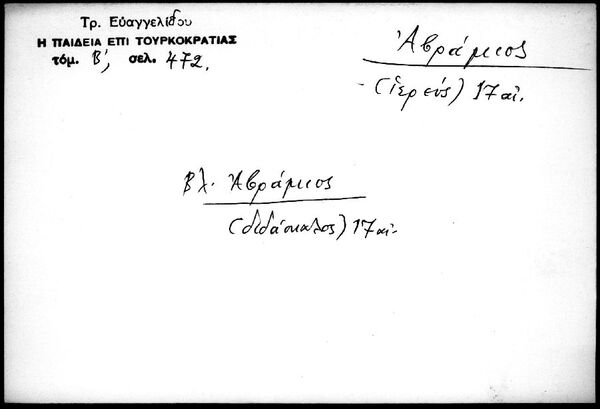 Τρ. Εὐαγγελίδου
Η ΠΑΙΔΕΙΑ ΕΠΙ ΤΟΥΡΚΟΚΡΑΤΙΑΣ
τόμ. Β', σελ. 472.
Ἀβράμιος
(ἱερεύς) 17 αἰ.
Βλ. Ἀβράμιος
(διδάσκαλος) 17 αι.